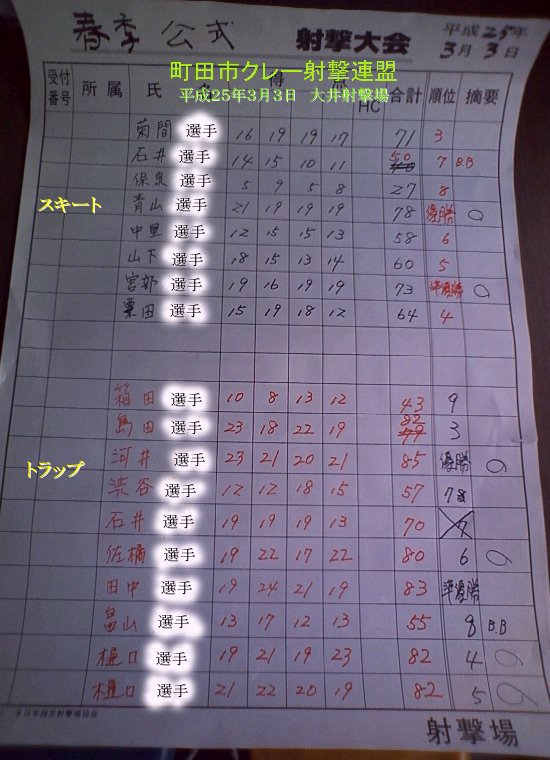 春季 公式 射撃大会 平成25年
3月3日
町田市クレー射撃連盟
平成25年3月3日 大井射撃場
受付番号 所属 氏 名 得 点 HC 合計 順位 摘要
菊間 選手 16 19 19 17 71 3
石井 選手 14 15 10 11 50 7 B.B
保泉 選手 5 9 5 8 27 8
スキート 青山 選手 21 19 19 19 78 優勝 ○
中里 選手 12 15 15 13 58 6
山下 選手 18 15 13 14 60 5
宮部 選手 19 16 19 19 73 準優勝 ○
栗田 選手 15 19 18 12 64 4
箱田 選手 10 8 13 12 43 9
島田 選手 23 18 22 19 82 3
トラップ 河井 選手 23 21 20 21 85 優勝 ○
渋谷 選手 12 12 18 15 57 7
石井 選手 19 19 19 13 70 7
佐橋 選手 19 22 17 22 80 6 ○
田中 選手 19 24 21 19 83 準優勝
畠山 選手 13 17 12 13 55 8 B.B
樋口 選手 19 21 19 23 82 4 ○
樋口 選手 21 22 20 19 82 5 ○
全日本指定射撃場協会
射撃場